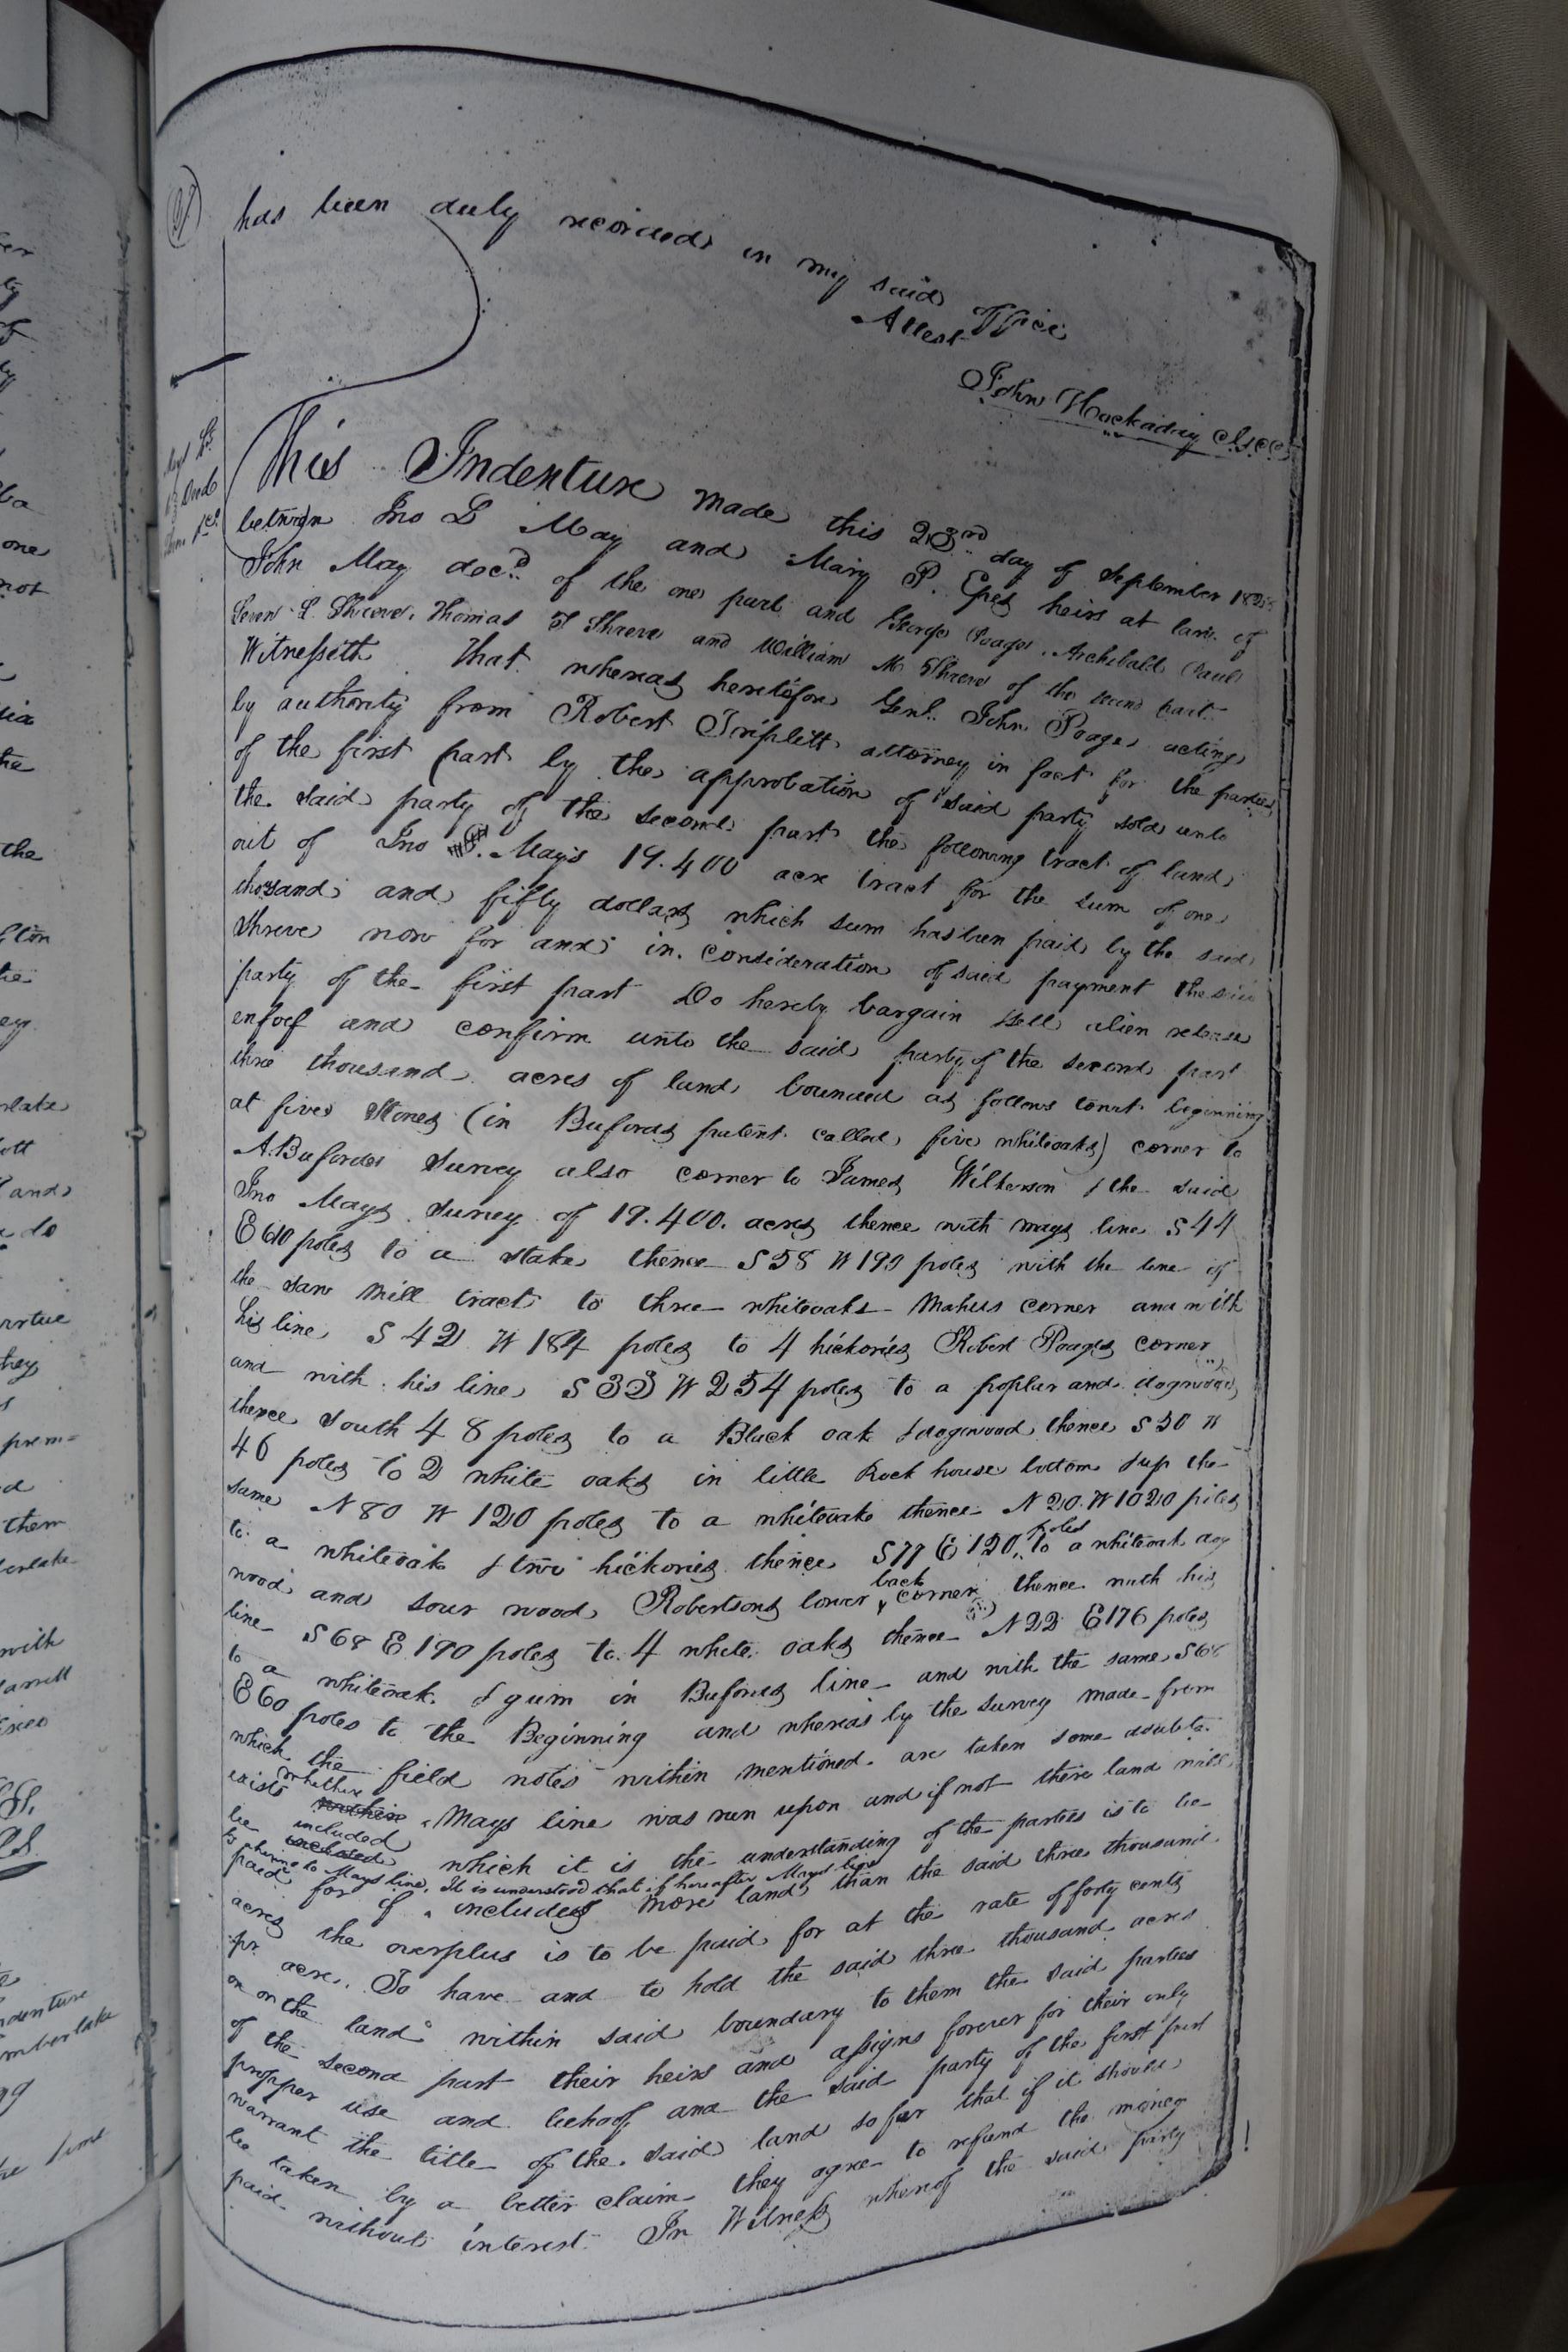 has been duly recorded in my said office
Attest
John Hockaday C.S.C.C.
This Indenture made this 23rd day of September
between Jno L May and Mary P. Epes heirs at law of
John May decd. of the one part and George Poage, Archibald Paul
Leven L. Shreve, Thomas T Shreve and William M Shreve of the second part
Witnesseth That whereas heretofore Genl. John Poage acting
by authority from Robert Triplett attorney in fact for the parties
of the first part by the approbation of said party sold unto
the said party of the second part the following tract of land
out of Jno Mays 19.400 acre tract for the sum of one
thosand and fifty dollars which sum has been paid by the said
Shreve now for and in consideration of said payment the said
party of the first part Do hereby bargain sell alien release
enfoef and confirm unto the said party of the second part
three thousand acres of land bounded as follows towit beginning
at five Stones (in Bufords patent called five whiteoaks) corner to
A. Bufords Survey also corner to James Wilkerson & the said
Jno Mays Survey of 19.400. acres thence with mays line S 44
E 610 poles to a stake thence S 58 W 190 poles with the line of
the Saw Mill tract to three whiteoaks corner and with
his line S 42 W 184 poles to 4 hickories Robert Poages corner
and with his line S 33 W 254 poles to a poplar and dogwood
thence South 48 poles to a Black oak & dogwood thence S 30 W
46 poles to 2 white oaks in little Rock house bottom & up the
same N 80 W 120 poles to a whiteoak thence N 20. W 1020 poles
to a whiteoak & two hickories thence S 77 E 120 poles to a whiteoak dog
wood and sour wood Robertsons lower back corner thence with his
line S 68 E 190 poles to 4 white oaks thence N 22 E 176 poles
to a whiteoak & gum in Bufords line and with the same S 68
E 60 poles to the Beginning and whereas by the Survey made from
which the field notes within mentioned are taken some doubts
exists whether Mays line was run upon and if not there land will
be included which it is the understanding of the parties is to be
to Mays line. It is understood that if hereafter Mays line
paid for if includes more land than the said three thousand
acres the overplus is to be paid for at the rate of forty cents
pr. acre. To have and to hold the said three thousand acres
on or the land within said boundary to them the said parties
of the second part their heirs and assigns forever for their only
propper use and behoof and the said party of the first part
warrant the title of the said land so far that if it should
be taken by a better claim they agree to refund the money
paid without interest. In Witness whereof the said party